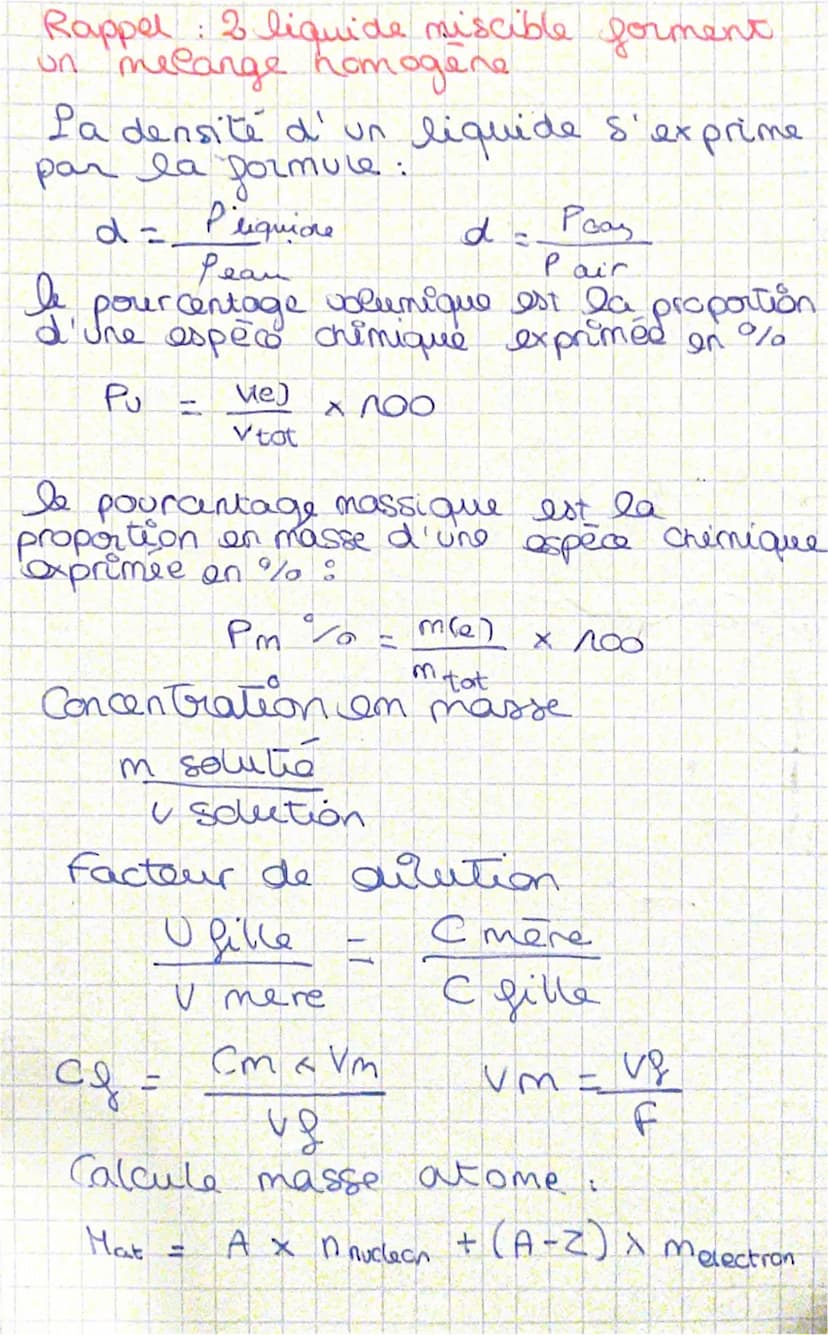 Rappel : 2 liquide miscible forment
un melange homogène
La densité d'un liquide s'exprime
par la formule :
d = ρ liquide / ρ eau    d = ρ gaz / ρ air
le pourcentage volumique est la proportion
d'une espèce chimique exprimée en %
Pv = V(e) / Vtot × 100
le pourcentage massique est la
proportion en masse d'une espèce chimique
exprimée en % :
Pm % = m(e) / m tot × 100
Concentration en masse
m soluté / v solution
Facteur de dilution
V fille / V mere = C mère / C fille
Cf = Cm × Vm / Vf    Vm = Vf / F
Calcule masse atome :
Mat = A × m nucleon + (A-Z) × m electron